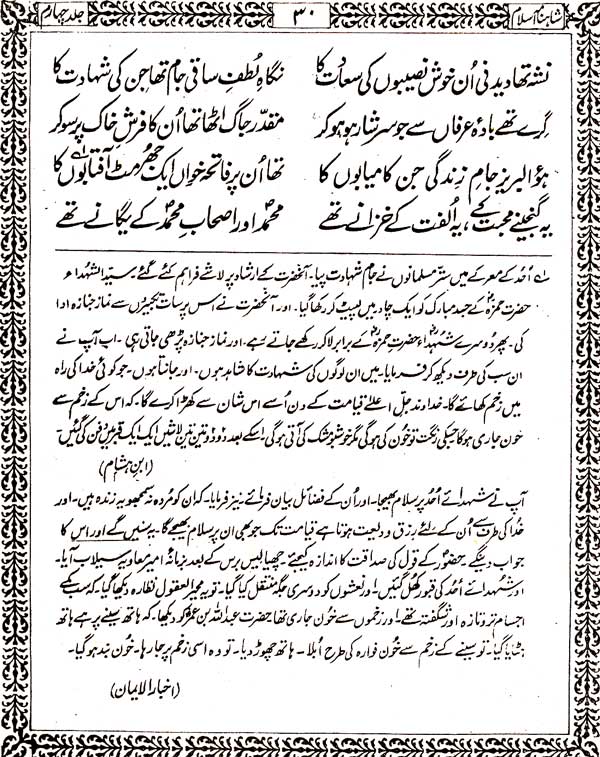 شاہنامہ اسلام
۳۰
جلد چہارم
نشہ تھا دیدنی اُن خوش نصیبوں کی سعادت کا
نگاہِ لُطفِ ساقی جام تھا جن کی شہادت کا
گرے تھے بادۂ عرفاں سے جو سرشار ہو ہو کر
مقدّر جاگ اٹھا تھا اُن کا فرشِ خاک پر سو کر
ہوا لبریز جامِ زندگی جن کامیابوں کا
تھا اُن پر فاتحہ خواں ایک جھرمٹ آفتابوں کا
یہ گنجینے محبت کے، یہ اُلفت کے خزانے تھے
محمدؐ اور اصحابِ محمدؐ کے یگانے تھے
لے اُحد کے معرکے میں ستّر مسلمانوں نے جام شہادت پیا۔ آنحضرت کے ارشاد پر لاشے فراہم کئے گئے سیّد الشہداء
حضرت حمزہؓ کے جسد مبارک کو ایک چادر میں لپیٹ کر رکھا گیا۔ اور آنحضرت نے اس پر سات تکبیروں سے نماز جنازہ ادا
کی۔ پھر دوسرے شہداء حضرت حمزہؓ کے برابر لا کر رکھے جاتے رہے۔ اور نماز جنازہ پڑھی جاتی رہی۔ اب آپ نے
ان سب کی طرف دیکھ کر فرمایا۔ میں ان لوگوں کی شہادت کا شاہد ہوں۔ اور جانتا ہوں۔ جو کوئی خدا کی راہ
میں زخم کھائے گا۔ خداوند جلّ اعلےٰ قیامت کے دن اُسے اس شان سے کھڑا کرے گا۔ کہ اس کے زخم سے
خون جاری ہوگا جسکی رنگت تو خون کی ہوگی مگر خوشبو مشک کی آتی ہوگی۔ اسکے بعد دو دو تین تین لاشیں ایک ایک قبر میں دفن کی گئیں۔
(ابن ہشام)
آپ نے شہدائے اُحد پر سلام بھیجا۔ اور اُن کے فضائل بیان فرمائے نیز فرمایا۔ کہ ان کو مردہ نہ سمجھو یہ زندہ ہیں۔ اور
خدا کی طرف سے اُن کے لئے رزق ودیعت ہوتا ہے قیامت تک جو بھی ان پر سلام بھیجے گا۔ یہ سنیں گے اور اس کا
جواب دینگے۔ حضورؐ کے قول کی صداقت کا اندازہ کیجئے۔ چھیالیس برس کے بعد بزمانۂ امیر معاویہ سیلاب آیا۔
اور شہدائے اُحد کی قبور کھل گئیں۔ اور نعشوں کو دوسری جگہ منتقل کیا گیا۔ تو یہ محیر العقول نظارہ دیکھا گیا۔ کہ سب کے
اجسام تر و تازہ اور شگفتہ تھے۔ اور زخموں سے خون جاری تھا حضرت عبداللہ بن عمرو کو دیکھا۔ کہ ہاتھ سینے پر ہے ہاتھ
ہٹایا گیا۔ تو سینے کے زخم سے خون فوارہ کی طرح اُبلا۔ ہاتھ چھوڑ دیا۔ تو وہ اسی زخم پر جا رہا۔ خون بند ہو گیا۔
(اخبار الایمان)